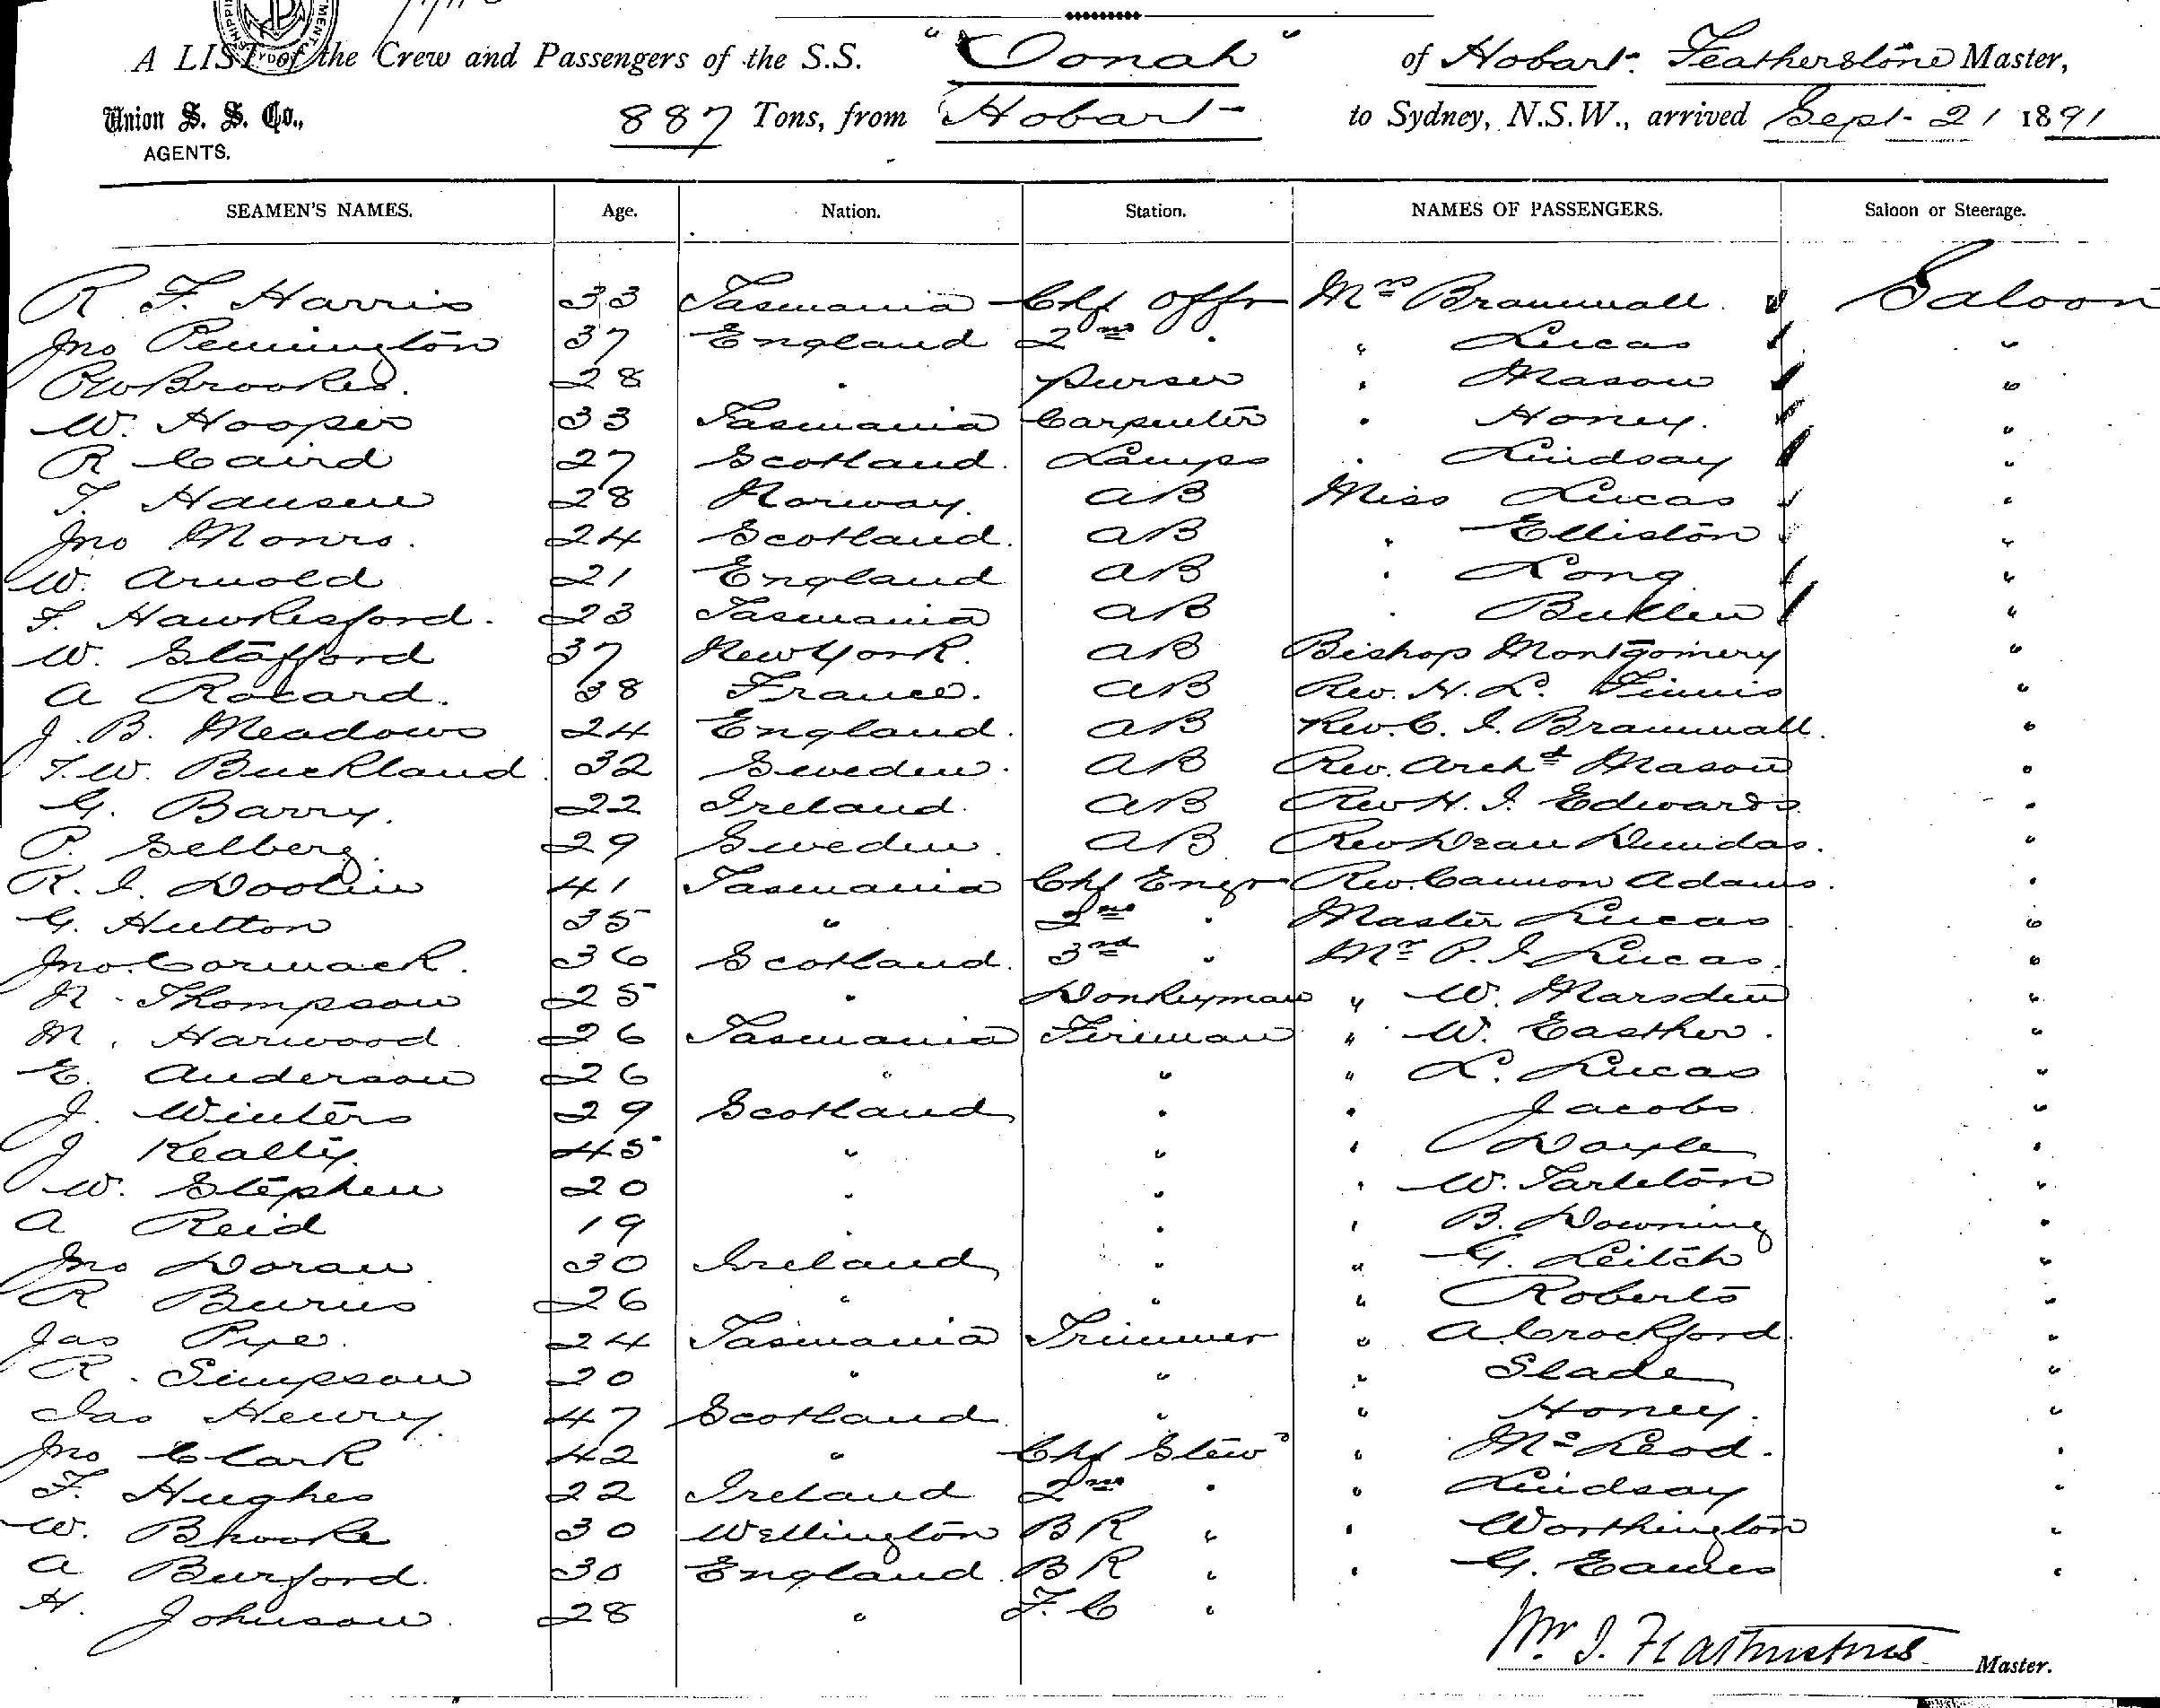 A LIST of the Crew and Passengers of the S.S. "Oonah" of Hobart. Featherstone Master,
Union S. S. Co., 887 Tons, from Hobart to Sydney, N.S.W., arrived Sept. 21 1891
AGENTS.
SEAMEN'S NAMES. Age. Nation. Station. NAMES OF PASSENGERS. Saloon or Steerage.
R F. Harris 33 Tasmania Chf Offr Mrs Bramwall. Saloon
Jno Pennington 37 England 2nd " " Lucas "
RW Brookes. 28 " Purser " Mason "
W. Hooper 33 Tasmania Carpenter " Honey. "
R Caird 27 Scotland. Lamps " Lindsay "
T. Hansen 28 Norway. AB Miss Lucas "
Jno Monro. 24 Scotland. AB " Elliston "
W. Arnold 21 England AB " Long "
F. Hawkesford. 23 Tasmania AB " Butlen "
W. Stafford 37 New York. AB Bishop Montgomery "
A Rocard. 38 France. AB Rev. H. L. Finnis "
J. B. Meadows 24 England. AB Rev. C. I. Bramwall. "
T. W. Buckland. 32 Sweden. AB Rev. Archd Mason "
G. Barry. 22 Ireland. AB Rev H. I. Edwards. "
P. Selberg. 29 Sweden. AB Rev Dean Dundas. "
R. I. Doolin 41 Tasmania Chf Engr Rev. Cannon Adams. "
G. Hutton 35 " 2nd " Master Lucas "
Jno. Cormack. 36 Scotland. 3rd " Mr P. I. Lucas. "
N. Thompson 25 " Donkeyman " W. Marsden "
M. Harwood 26 Tasmania Fireman " W. Easther. "
E. Anderson 26 " " " L. Lucas "
J. Winters 29 Scotland " " Jacobs "
J Kealty. 45 " " " Doyle "
W. Stephen 20 " " " W. Tarleton "
A Reid 19 " " " B. Downing "
Jno Doran 30 Ireland " " G. Leitch "
R Burns 26 " " " Roberts "
Jas Pye. 24 Tasmania Trimmer " A. Crockford. "
R. Simpson 20 " " " Slade "
Jas Henry. 47 Scotland " " Honey. "
Jno Clark 42 " Chf Stewd " McLeod. "
F. Hughes 22 Ireland 2nd " " Lindsay "
W. Brooke 30 Wellington BR " " Worthington "
A Burford. 30 England. BR " " G. Eames "
H. Johnson. 28 " F. C "
Master.